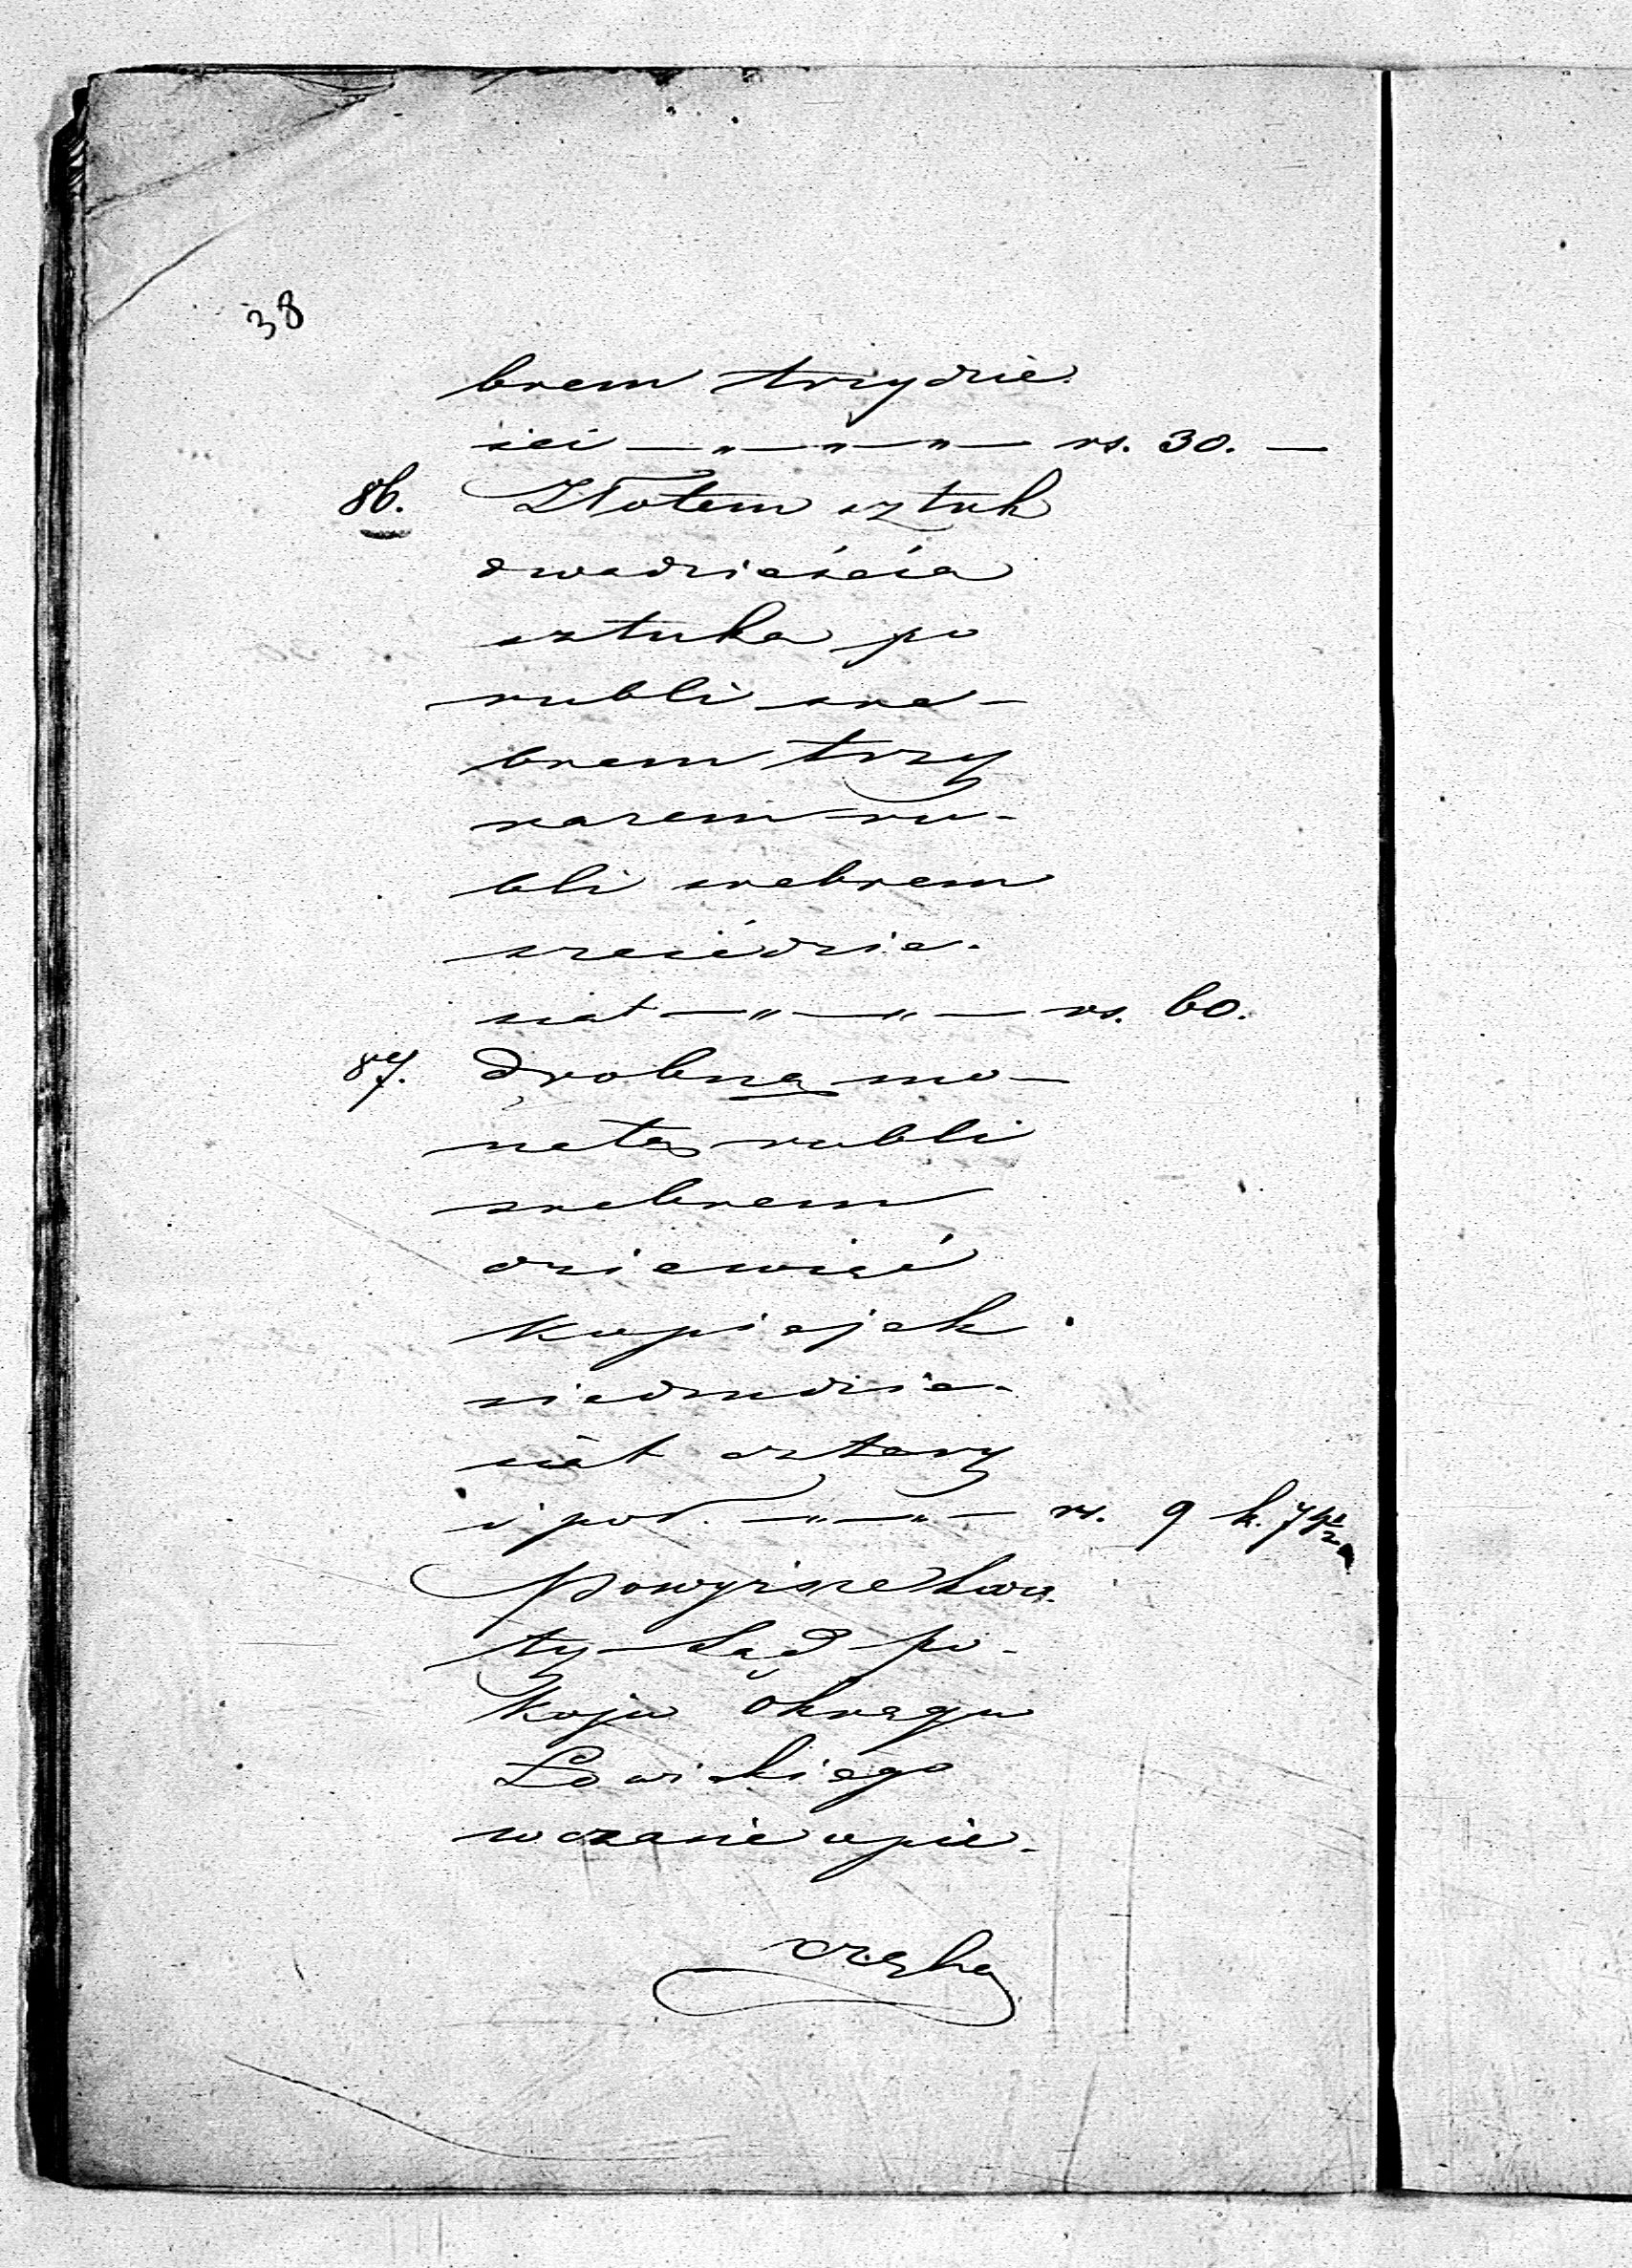 38
brem trzydzie
ści —„—„—„— rs. 30. —
86. Złotem sztuk
dwadzieścia
sztuka po
rubli sre-
brem trzy
razem ru-
bli srebrem
sześćdzie-
siąt —„—„— rs. 60.
87. drobną mo-
netą rubli
srebrem
dziewięć
kopiejek
siedmdzie-
siąt cztery
i poł. —„—„— rs. 9 k. 74½
Powyższe kwo-
ty Sąd po-
koju Okręgu
Łowickiego
w czasie opie-